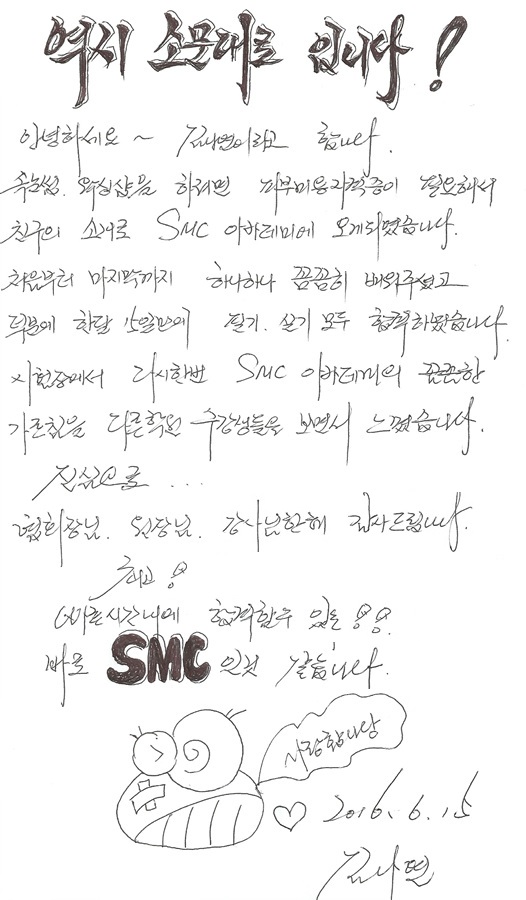 역시 소문대로 입니다!
안녕하세요~ 김나연이라고 합니다.
속눈썹. 왁싱샵을 하려면 피부미용자격증이 필요해서
친구의 소개로 SMC 아카데미에 오게되었습니다.
처음부터 마지막까지 하나하나 꼼꼼히 배워주셨고
덕분에 한달 15일만에 필기. 실기 모두 합격하였습니다.
시험장에서 다시한번 SMC 아카데미의 꼼꼼한
가르침을 다른학원 수강생들을 보면서 느꼈습니다.
진심으로...
협회장님. 원장님. 강사님한해 감사드립니다.
최고!
빠른시간내에 합격할수 있는!!
바로 SMC 인것 같습니다.
사랑합니당
♡ 2016. 6. 15
김나연